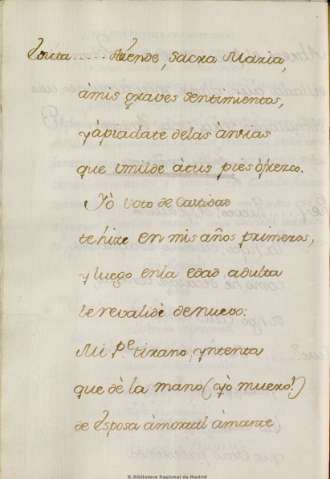 Atiende, Sacra Maria,
à mis graves sentimientos,
y àpiadate de las ànsias
que umilde à tus pies ofrezco.
Yò voto de Castidad
te hize en mis años primeros,
y luego en la edad adulta
le revalidè de nuevo.
Mi P.e tirano, yntenta
que dè la mano (yò muero!)
de Esposa à mortal àmante
© Biblioteca Nacional de Madrid